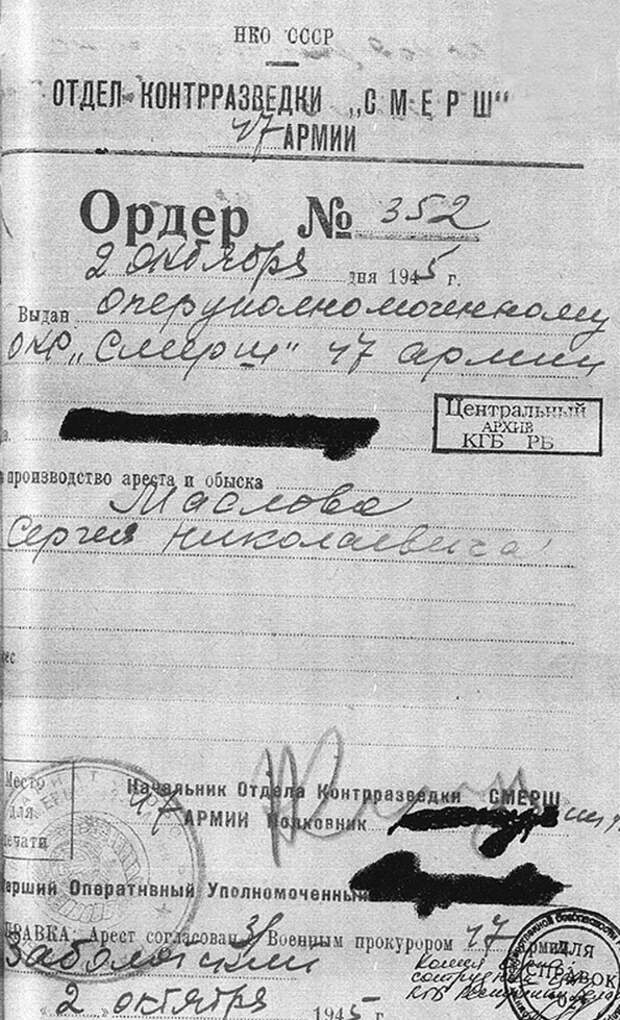 НКО СССР
ОТДЕЛ КОНТРРАЗВЕДКИ „СМЕРШ“
17 АРМИИ
Ордер № 352
2 октября дня 1945 г.
Выдан оперуполномоченному
ОКР „Смерш" 17 армии
Центральный
АРХИВ
КГБ РБ
производство ареста и обыска
Маслова
Сергея Николаевича
Место
для
печати
Начальник Отдела Контрразведки СМЕРШ
17 АРМИИ Полковник
Оперативный Уполномоченный
Арест согласован с Военным прокурором 17 Армии
2 октября 1945 г.
ДЛЯ
СПРАВОК